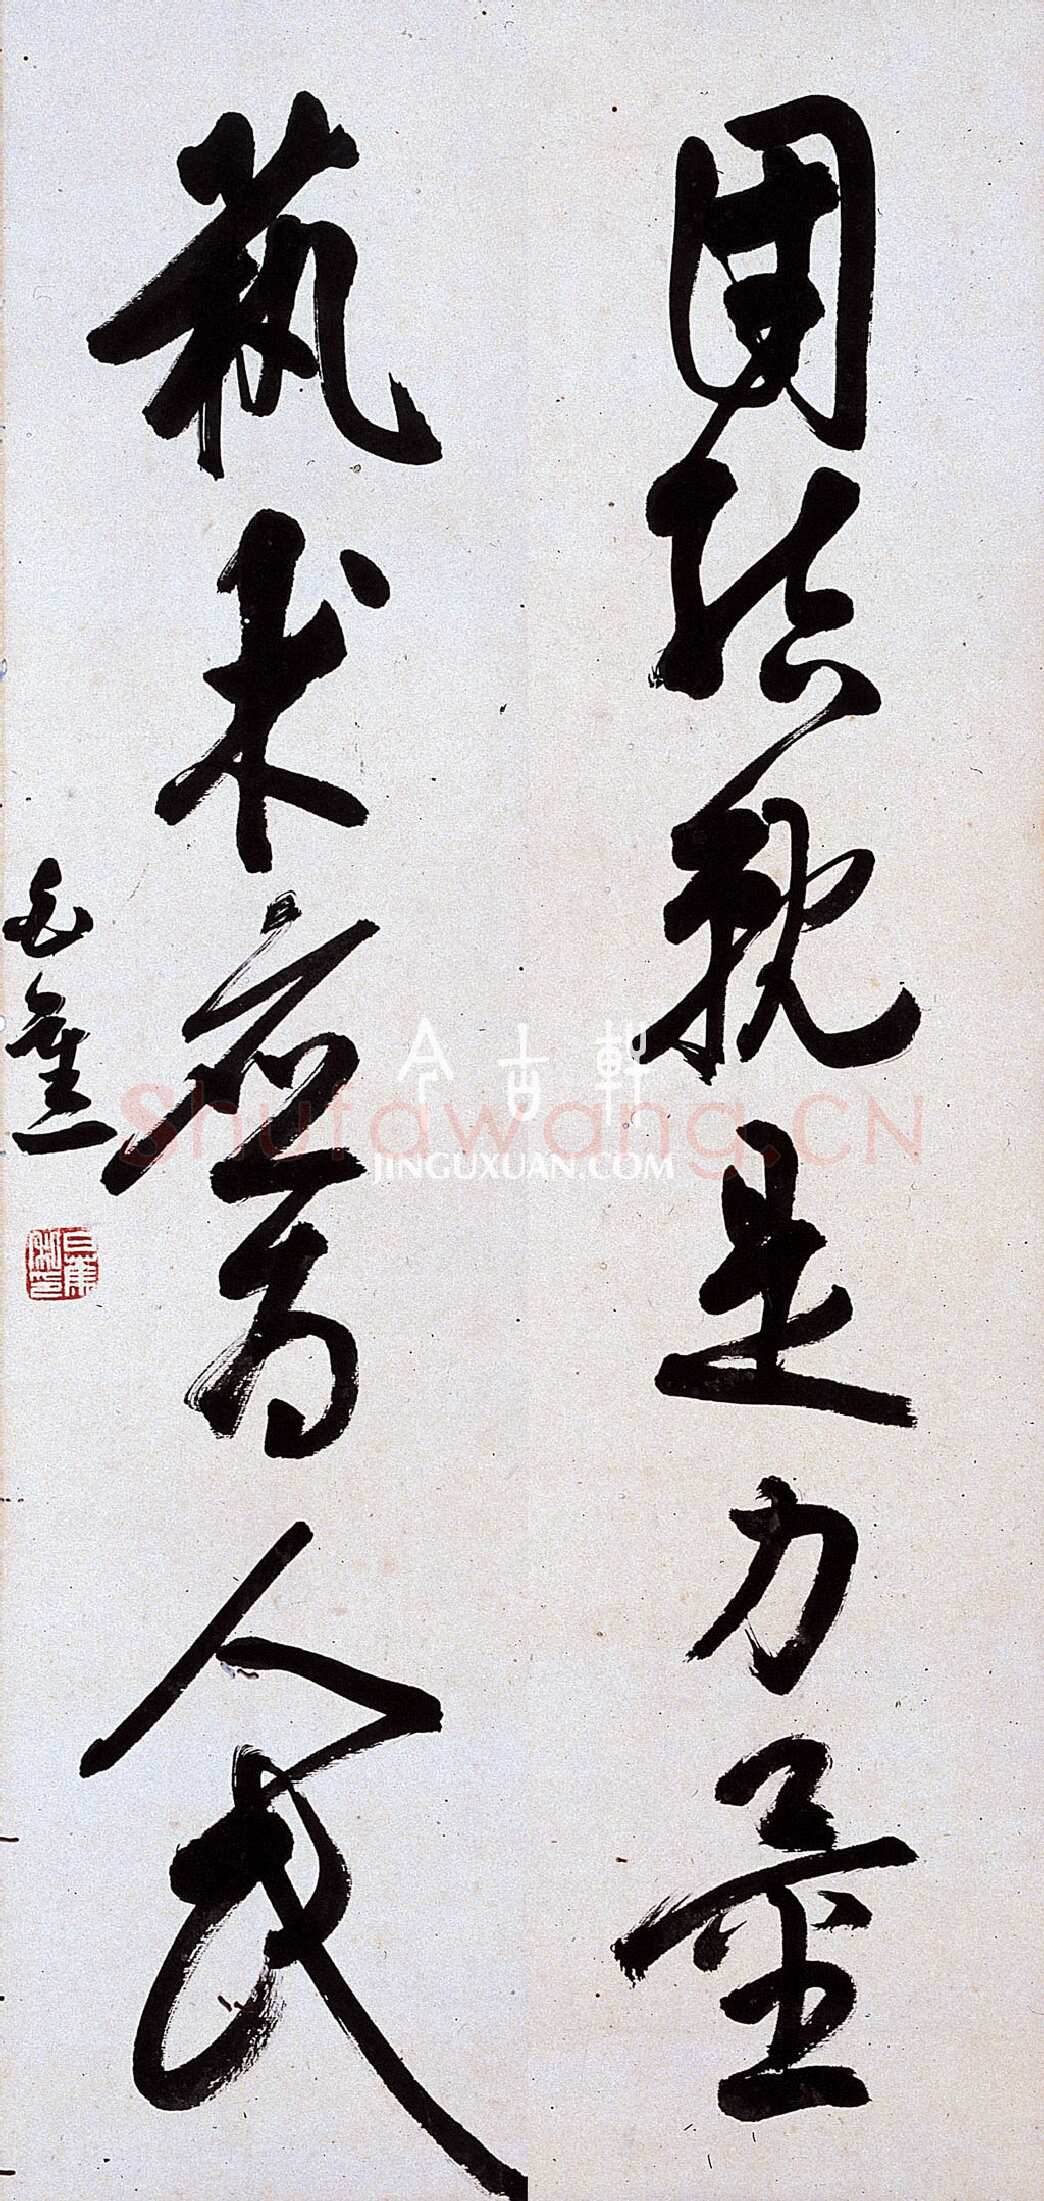 團結就是力量
蓺术應為人民
白蕉
今古軒
JINGUXUAN.COM
Shufawang.CN